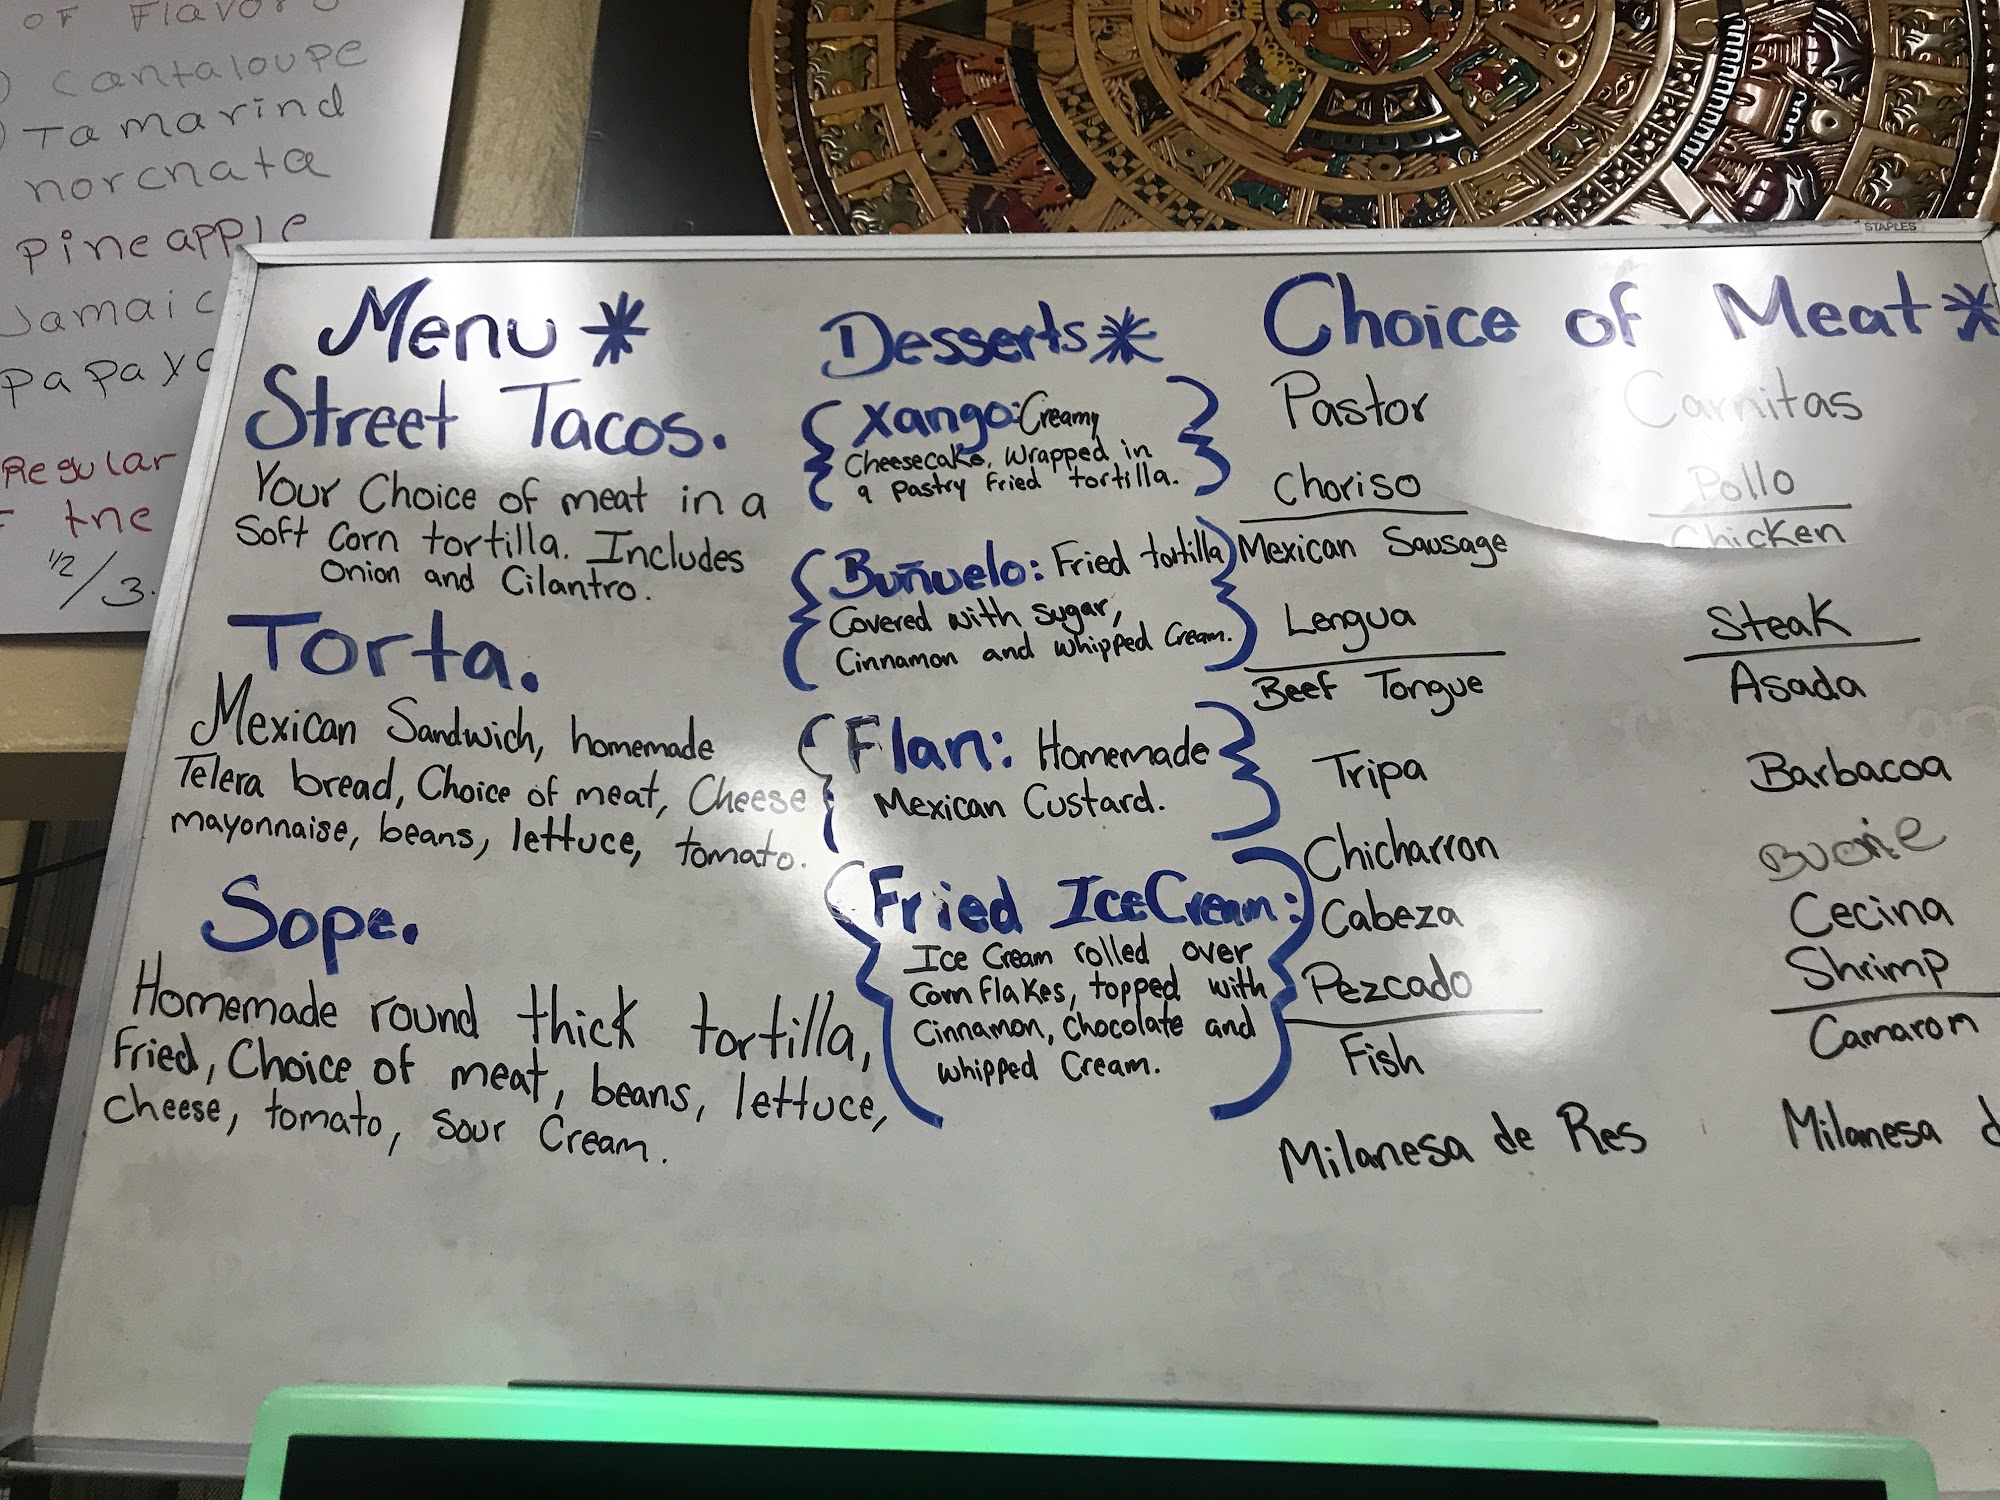 OF Flavors
Cantaloupe
Tamarind
horchata
Pineapple
Jamaic
Papaya
Regular
the
1/2/3.
STAPLES
Menu *
Street Tacos.
Your Choice of meat in a
Soft Corn tortilla. Includes
Onion and Cilantro.
Torta.
Mexican Sandwich, homemade
Telera bread, Choice of meat, Cheese
mayonnaise, beans, lettuce, tomato.
Sope.
Homemade round thick tortilla,
Fried, Choice of meat, beans, lettuce,
Cheese, tomato, Sour Cream.
Desserts *
Xango: Creamy
Cheesecake, Wrapped in
a Pastry Fried tortilla.
Buñuelo: Fried tortilla
Covered with sugar,
Cinnamon and whipped Cream.
Flan: Homemade
Mexican Custard.
Fried Ice Cream:
Ice Cream rolled over
Corn Flakes, topped with
Cinnamon, Chocolate and
whipped Cream.
Choice of Meat *
Pastor
Choriso
Mexican Sausage
Lengua
Beef Tongue
Tripa
Chicharron
Cabeza
Pezcado
Fish
Milanesa de Res
Carnitas
Pollo
Chicken
Steak
Asada
Barbacoa
Cecina
Shrimp
Camaron
Milanesa d